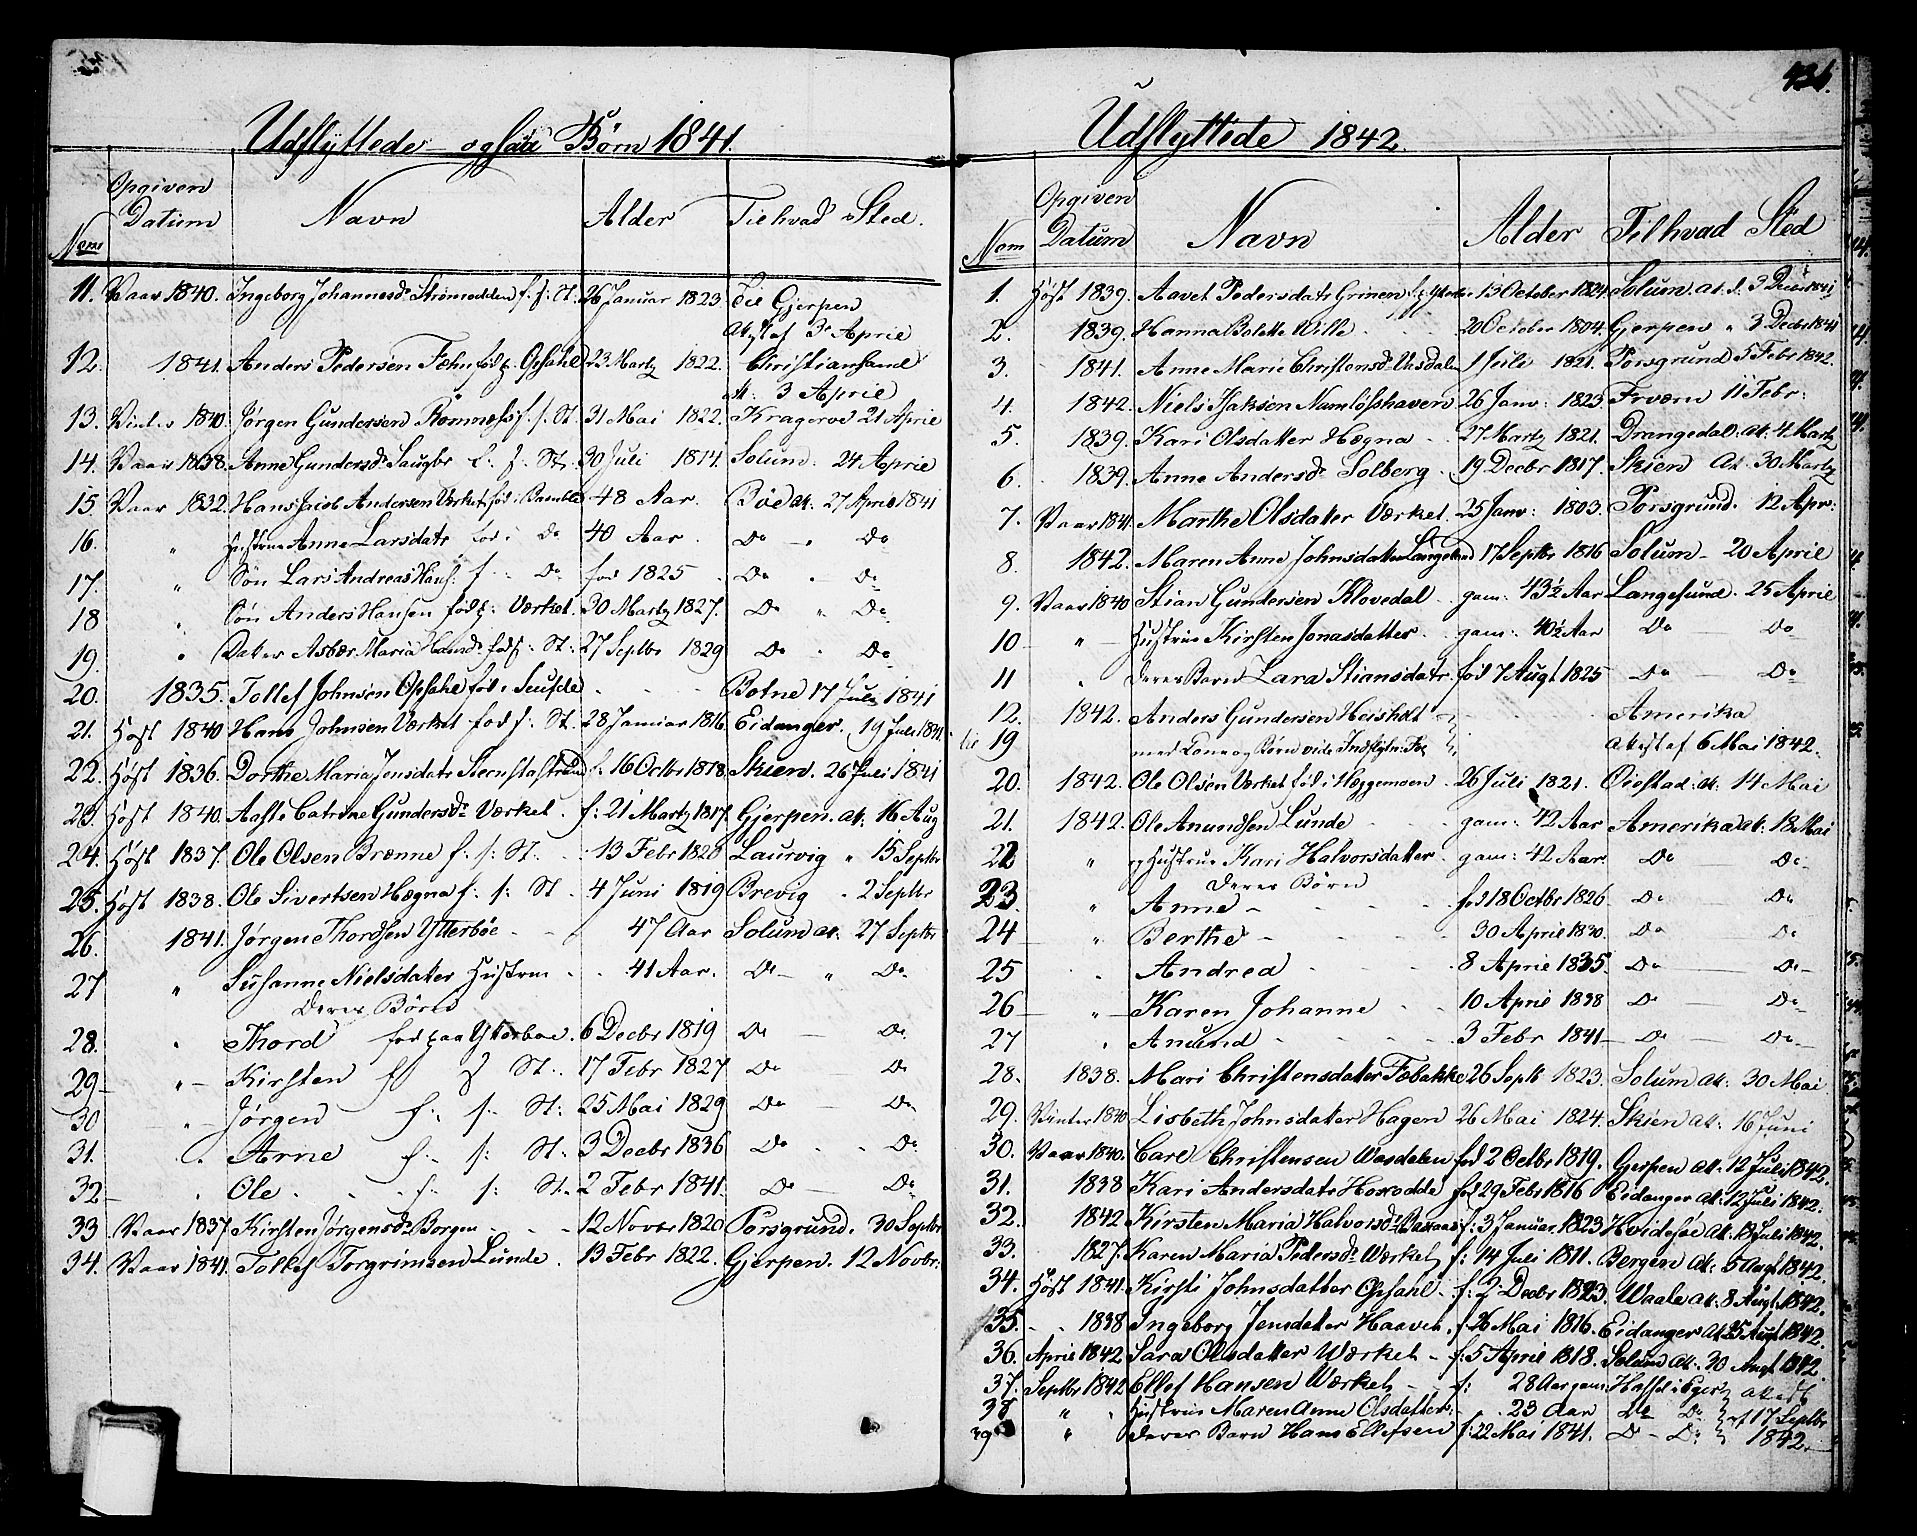 Udflyttede ogsaa Børn 1841.
Nom
Opgiven Datum
Navn
Alder
Til hvad Sted.
11. Vaar 1840. Ingeborg Johannesd. Strømodden f. f: St. 26 Januar 1823 Til Gjerpen
Attest af 3 April
12. 1841. Anders Pedersen Fæhn fød p. Opsahl 23 Martz 1822. Christiansand
At: 3 April
13. Vinter 1840. Jørgen Gundersen Rønnæs f. s. St. 31 Mai 1822. Kragerøe 21 April
14. Vaar 1838. Anne Gundersd. Saugbr f: s. St. 30 Juli 1814. Solum. 24 April
15. Vaar 1832. Hans Jacob Andersen Værket fød i Bamble 48 Aar. Bøe At. 27 April 1841
16. " Hustrue Anne Larsdatr fød i Do 40 Aar. Do " Do
17. " Søn Lars Andreas Hans: f. Do fød 1825 Do " Do
18 " Søn Anders Hansen fød p: Værket. 30 Martz 1827. Do " Do
19. " Dater Asbær Maria Hansd. fød f: St: 27 Septbr 1829 Do " Do
20. 1835. Tollef Johnsen Opsahl fød i Saufde - - - Botne 17 Juli 1841
21. Høst 1840 Hans Johnsen Værket fød f: St. 28 Januar 1816. Eidanger. 19 Juli 1841
22. Høst 1836. Dorthe Maria Jensdatr Sternstastrand f: 16 Octbr 1818. Skien. 26 Juli 1841
23. Høst 1840. Aaste Catrine Gundersd. Værket. f: 21 Martz 1817. Gjerpen. At: 16 Aug
24. Høst 1837. Ole Olsen Brænne f: s: St. 13 Febr 1820 Laurvig " 15 Septbr
25. Høst 1838. Ole Sivertsen Hægna f. s: St 4 Juni 1819 Brevig - 2 Septbr
26. 1841. Jørgen Thordsen Ytterbøe - - 47 Aar Solum At. 27 Septbr
27 " Susanne Nielsdater Hustrue - - 41 Aar. Do - " Do
Deres Børn
28. " Thord fød paa Ytterbøe. 6 Decbr 1819 Do - Do
29 - " Kirsten f s St. 17 Febr 1827 Do Do
30 - " Jørgen f: s: St: 25 Mai 1829 Do - Do
31. " Arne f. s: St: 3 Decbr 1836 Do - - Do
32 - " Ole f: s: St. 2 Febr 1841. Do - Do
33 Vaar 1837. Kirsten Jørgensd. Borgen - - 12 Novbr 1820 Porsgrund. 30 Septbr
34. Vaar 1841. Tollef Torgrimsen Lunde. 13 Febr 1822. Gjerpen. 12 Novbr:
436.
Udflyttede 1842.
Nom
Opgiven Datum
Navn
Alder
Til hvad Sted
1. Høst 1839. Aavet Pedersdatr Grinen f. p. Ytterbø 13 October 1824. Solum. At. d. 3 Decbr 1841
2. 1839. Hanna Bolette Wille - - 20 October 1804. Gjerpen " 3 Decbr 1841
3. 1841. Anne Marie Christensd. Vasdalen 1 Juli 1821. Porsgrund 5 Febr 1842.
4. 1842. Niels Isaksen Namløshaven 26 Janv: 1823 Frværn 11 Febr:
5. 1839. Kari Olsdatter Hægna - 27 Martz 1821. Drangedal. At: 4 Martz
6. 1839. Anne Andersd. Solberg. 19 Decbr 1817. Skien At. 30 Martz
7. Vaar 1841. Marthe Olsdater Værket. 25 Janv: 1803. Porsgrund. 12 Apr:
8. 1842. Maren Anne Johnsdatter Langeland 17 Septbr 1816 Solum - 20 April
9. Vaar 1840 Stian Gundersen Klovedal - gam: 43½ Aar Langesund. 25 April
10 " - Hustrue Kirsten Jonasdatter - gam: 40½ Aar Do Do
11 " Deres Barn Lara Stiansdatr. fød 7 Augt 1825 Do - Do
12. 1842. Anders Gundersen Heisholt - - Amerika
til 19 med Kone og Børn vide Indflytn: Attest af 6 Mai 1842.
20. 1842. Ole Olsen Værket fød i Hæggemoen 26 Juli 1821. Oiestad: At: 14 Mai
21. 1842. Ole Anundsen Lunde - gam: 42 Aar Amerika At: 18 Mai
22 " og Hustrue Kari Halvorsdatter. gam: 42 Aar Do - Do
Deres Børn
23. " Anne - - fød 18 Octbr 1826 Do - Do
24 - " Berthe - - 30 April 1830. Do - Do
25 " Andrea - - 8 April 1835 Do - Do -
26 - " - Karen Johanne - - 10 April 1838 Do - Do -
27 " Anund - - 3 Febr 1841 - Do - Do -
28. 1838. Mari Christensdater Fæbakke 26 Septb 1823. Solum At: 30 Mai
29. Vinter 1840 Lisbeth Johnsdater Hagen 26 Mai 1824. Skien At: 16 Juni
30. Vaar 1840. Carl Christensen Wasdalen fød 2 Octbr 1819. Gjerpen At: 12 Juli 1842.
31. 1838 Kari Andersdatr Hosrodde fød 29 Febr 1816 Eidanger At: 12 Juli 1842.
32. 1842 Kirsten Maria Halvorsd. f: 3 Januar 1823 Hvidesøe At: 13 Juli 1842.
33. 1827. Karen Maria Pedersd. Værket f: 14 Juli 1811. Bergen At: 5 Augt 1842.
34. Høst 1841. Kirsti Johnsdatter Opsahl - f: 2 Decbr 1823. Waale At: 8 Augt 1842.
35. - - 1838 Ingeborg Jensdater Haavet, f: 26 Mai 1816. Eidanger At: 25 Augt 1842
36. April 1842 Sara Olsdatter Værket - f: 5 April 1818. Solum At: 30 Augt 1842.
37. Septbr 1842 Ellef Hansen Værket - f: 28 Aar gam: Hassel i Eger Attest
38 " " Hustrue Maren Anne Olsdatter: - - 23 Aar Do Do af 17 Septbr
39 " Deres Barn Hans Ellefsen f: 22 Mai 1841. Do - Do 1842.